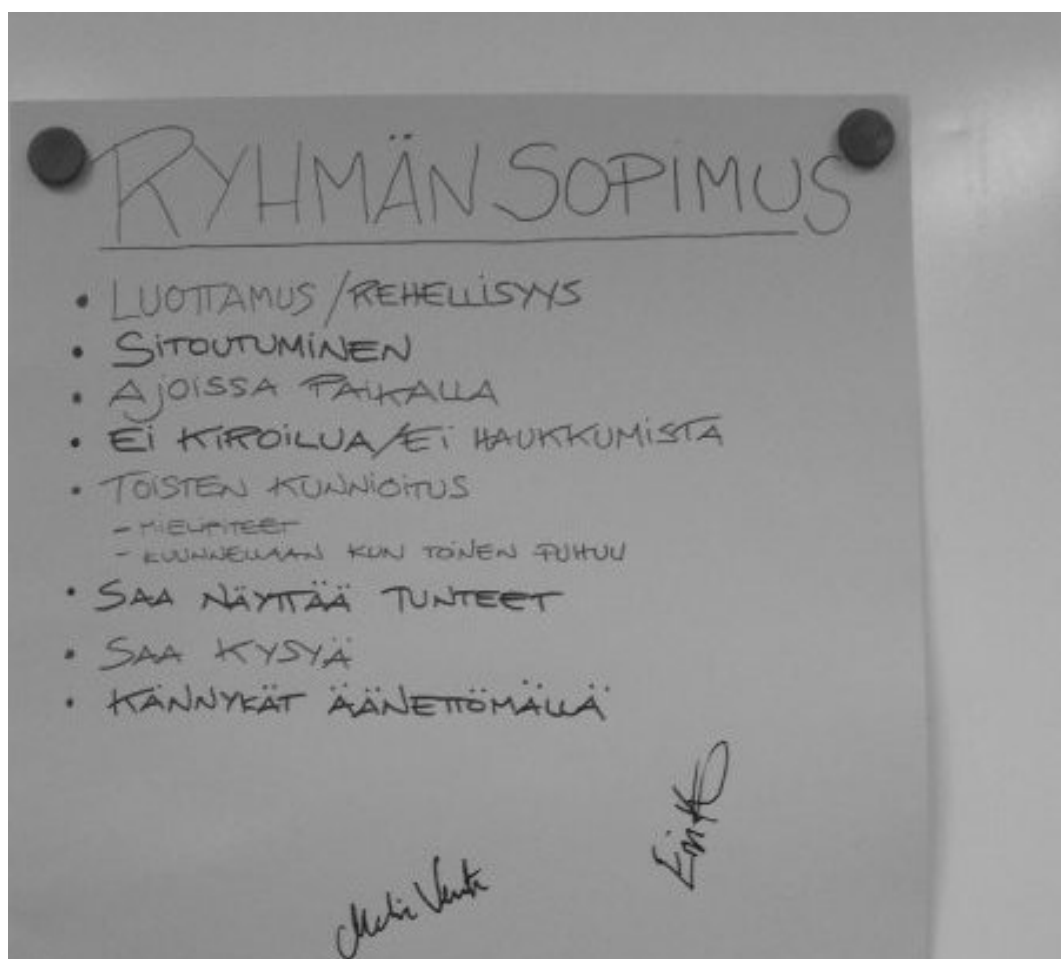 RYHMÄN SOPIMUS
• LUOTTAMUS/REHELLISYYS
• SITOUTUMINEN
• AJOISSA PAIKALLA
• EI KIROILUA/EI HAUKKUMISTA
• TOISTEN KUNNIOITUS
- MIELIPITEET
- KUUNNELLAAN KUN TOINEN PUHUU
• SAA NÄYTTÄÄ TUNTEET
• SAA KYSYÄ
• KÄNNYKÄT ÄÄNETTÖMÄLLÄ